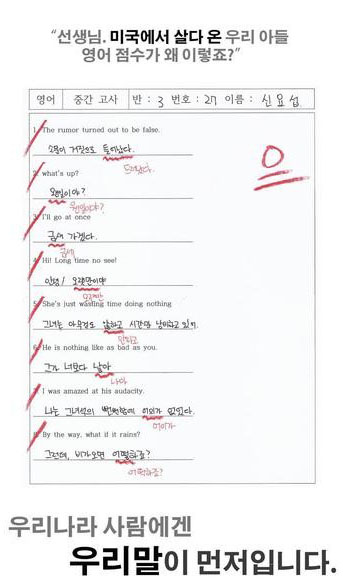 “선생님. 미국에서 살다 온 우리 아들
영어 점수가 왜 이렇죠?”
영어 중간 고사 반 : 3 번호 : 27 이름 : 신요섭
0
1. The rumor turned out to be false.
소문이 거짓으로 들어났다.
드러났다.
2. what's up?
왠일이야?
웬일이야?
3. I'll go at once
금새 가겠다.
금세
4. Hi! Long time no see!
안녕! 오랫만이야
오랜만
5. She's just wasting time doing nothing
그녀는 아무것도 않하고 시간만 낭비하고 있어.
안하고
6. He is nothing like as bad as you.
그가 너보다 낳아
나아
7. I was amazed at his audacity.
나는 그녀석의 뻔뻔함에 어의가 없었다.
어이가
8. By the way, what if it rains?
그런데, 비가오면 어떻하죠?
어떡하죠?
우리나라 사람에겐
우리말이 먼저입니다.